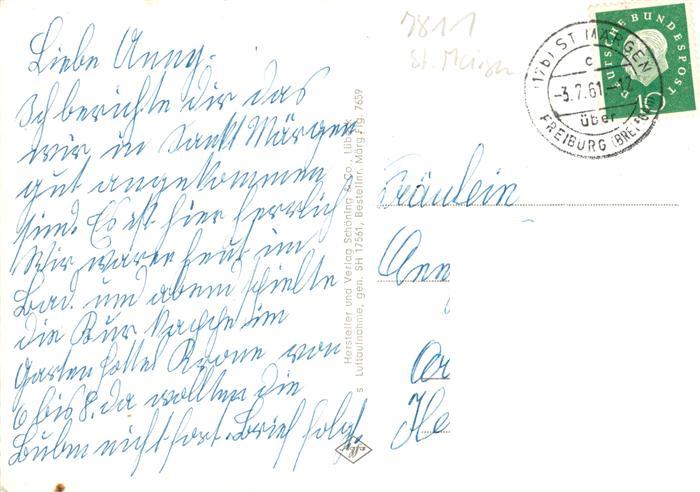 Liebe Anny.
Ich berichte dir das
wir in Sankt Märgen
gut angekommen
sind. Es ist hier herrlich
Wir waren heut im
Bad. und abend spielte
die Kur Kappe im
Garten hottel Krone von
6 bis 8. da wollten die
Bubm nicht fort. Brief folgt.
Hersteller und Verlag Schöning & Co., Lübeck
s Luftaufnahme, gen. SH 17561, Bestellnr. Märg Frg. 7659
Agfa
7811
St. Märgen
(17b) ST MÄRGEN
c
-3.7.61-12
über
FREIBURG (BREISGAU)
DEUTSCHE BUNDESPOST
10
Fräulein
Ann